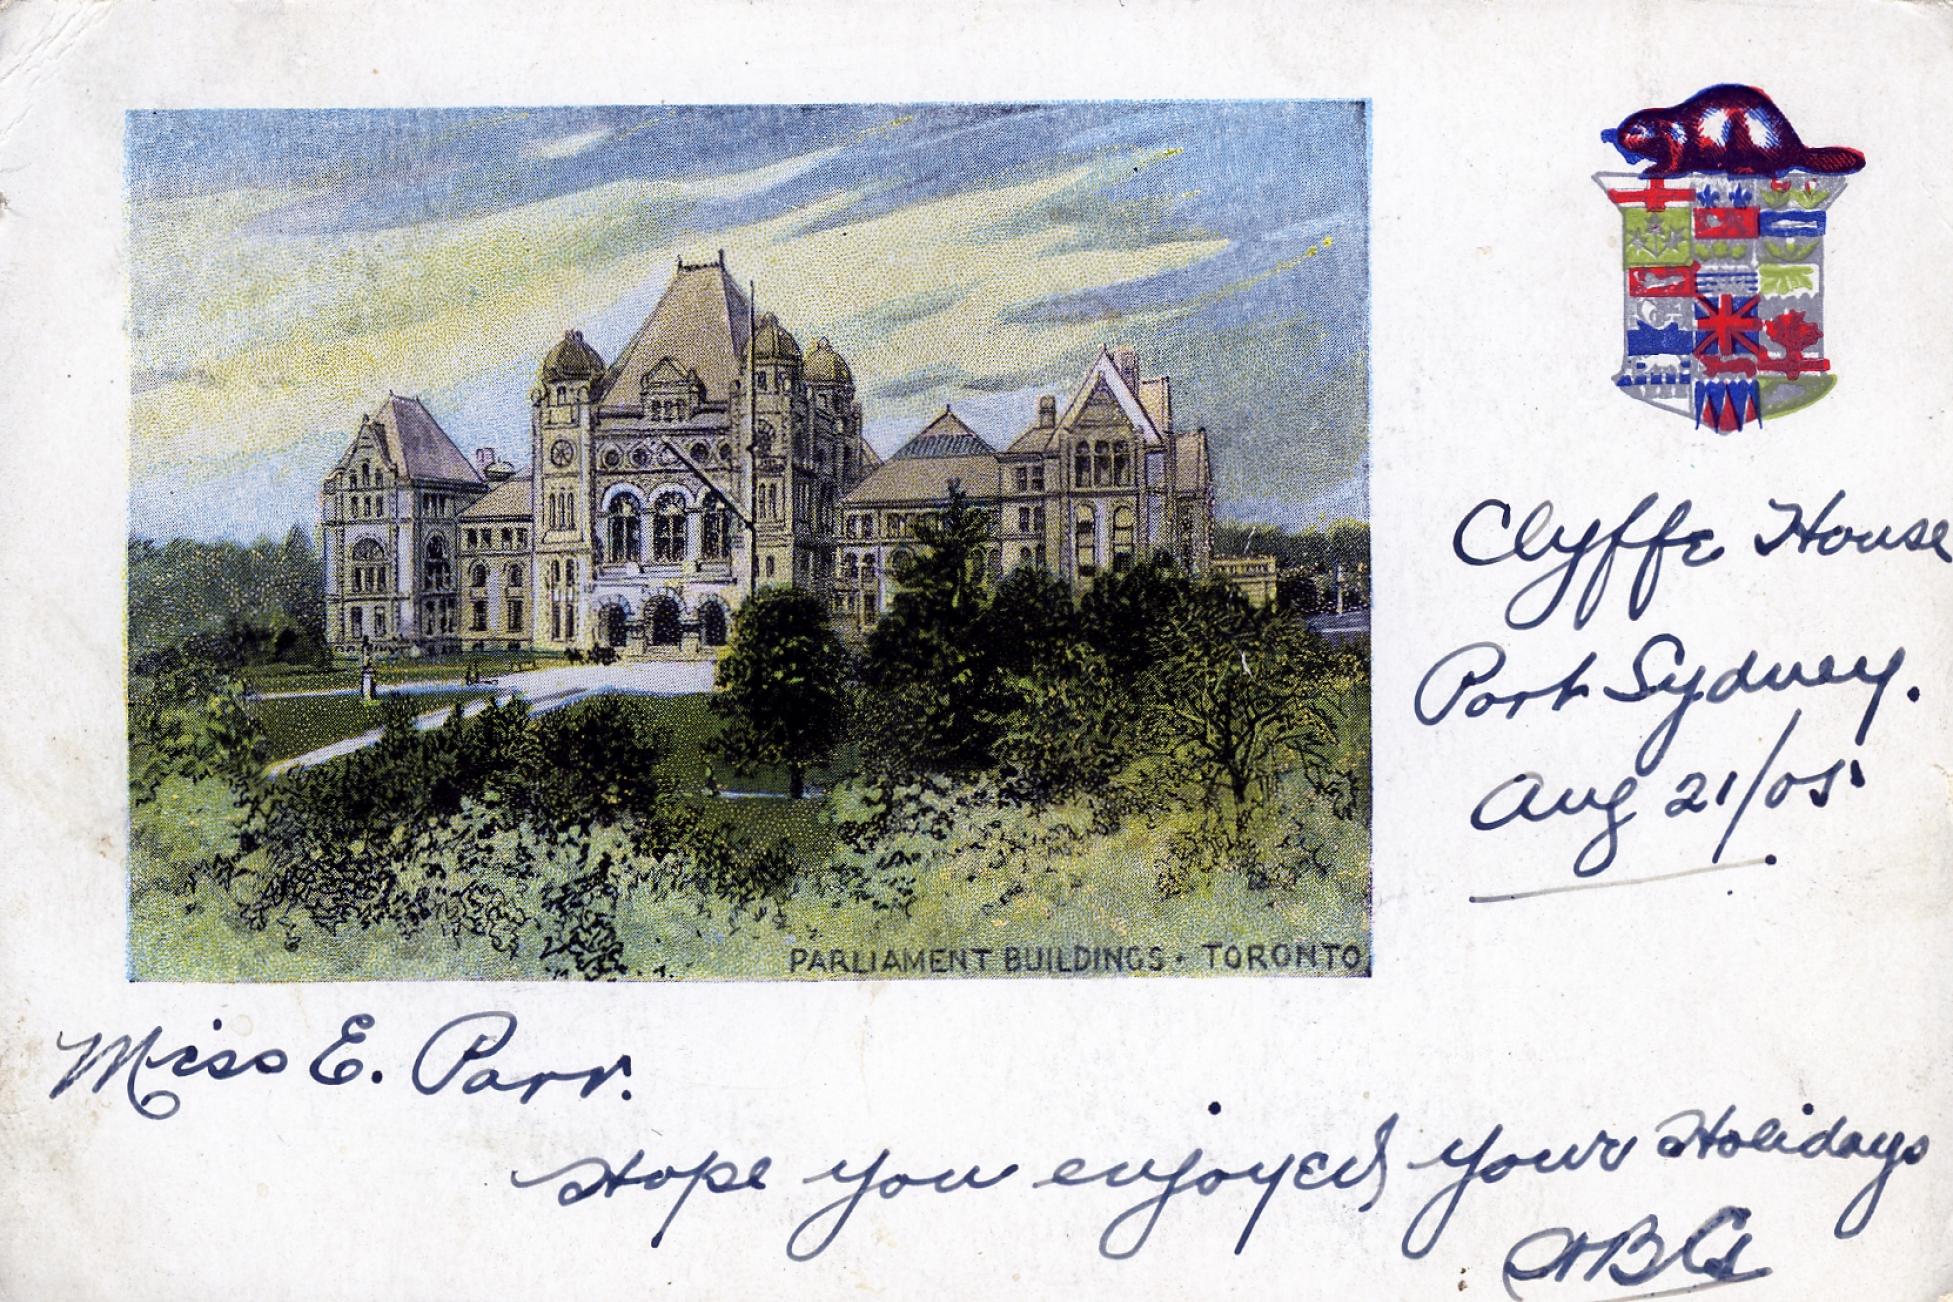 PARLIAMENT BUILDINGS · TORONTO
Clyffe House
Port Sydney.
Aug 21/05
Miss E. Parr.
Hope you enjoyed your Holidays